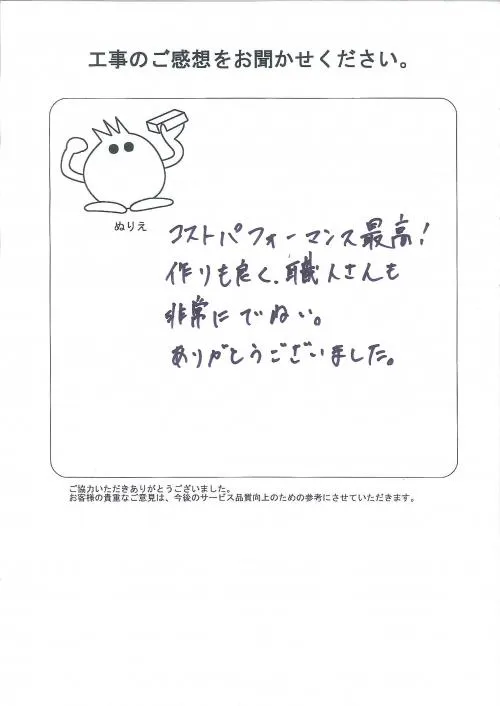 工事のご感想をお聞かせください。
ぬりえ
コストパフォーマンス最高!
作りも良く、職人さんも
非常にでねい。
ありがとうございました。
ご協力いただきありがとうございました。
お客様の貴重なご意見は、今後のサービス品質向上のための参考にさせていただきます。